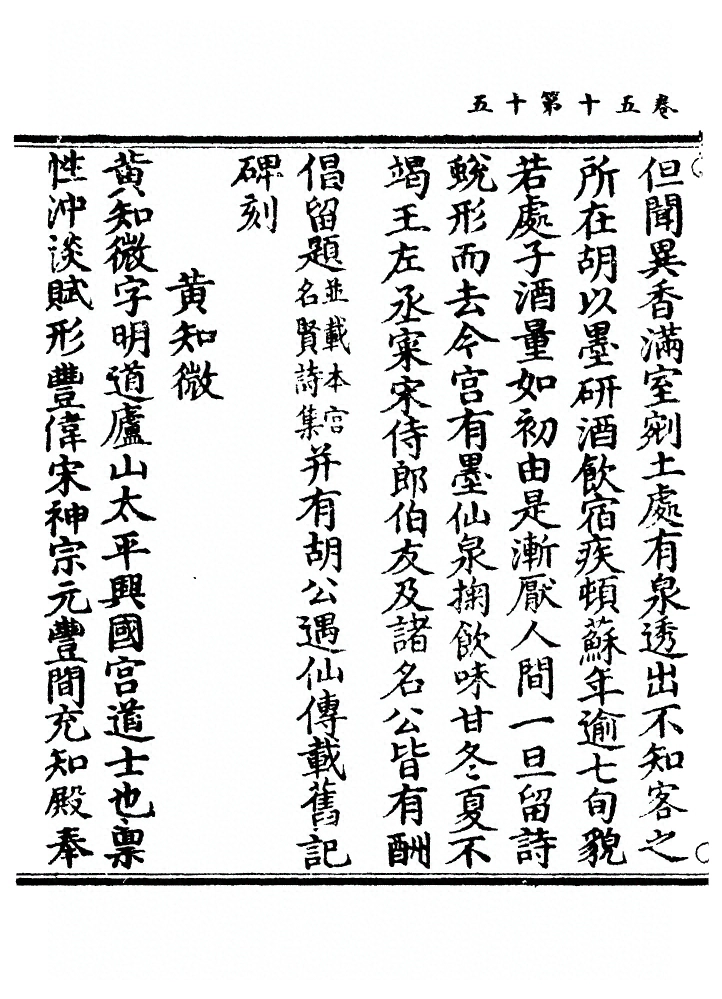 卷五十第十五
但聞異香滿室剜土處有泉透出不知客之
所在胡以墨研酒飲宿疾頓蘇年逾七旬貌
若處子酒量如初由是漸厭人間一旦留詩
蛻形而去今宫有墨仙泉掬飲味甘冬夏不
竭王左丞寀宋侍郎伯友及諸名公皆有酬
倡留題並載本宫名賢詩集并有胡公遇仙傳載舊記
碑刻
黃知微
黃知微字明道廬山太平興國宫道士也禀
性沖淡賦形豐偉宋神宗元豐間充知殿奉